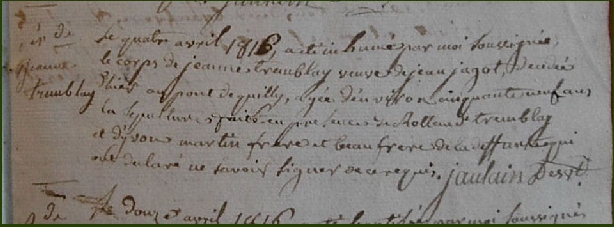 Jaulain
le quatre avril 1816, a été inhumé par moi soussigné,
le corps de jeanne tremblay veuve de jean jagot, décédée
hier au pont de quilly, agée d'environ cinquante neuf ans
tremblay
la sepulture s'faite en presence de Rolland tremblay
et d'yvon martin frere et beaufrere de la deffunte qui
ont declaré ne savoir signer de ce requis. jaulain Dessert
de
le douze avril 1816 par moi soussigné